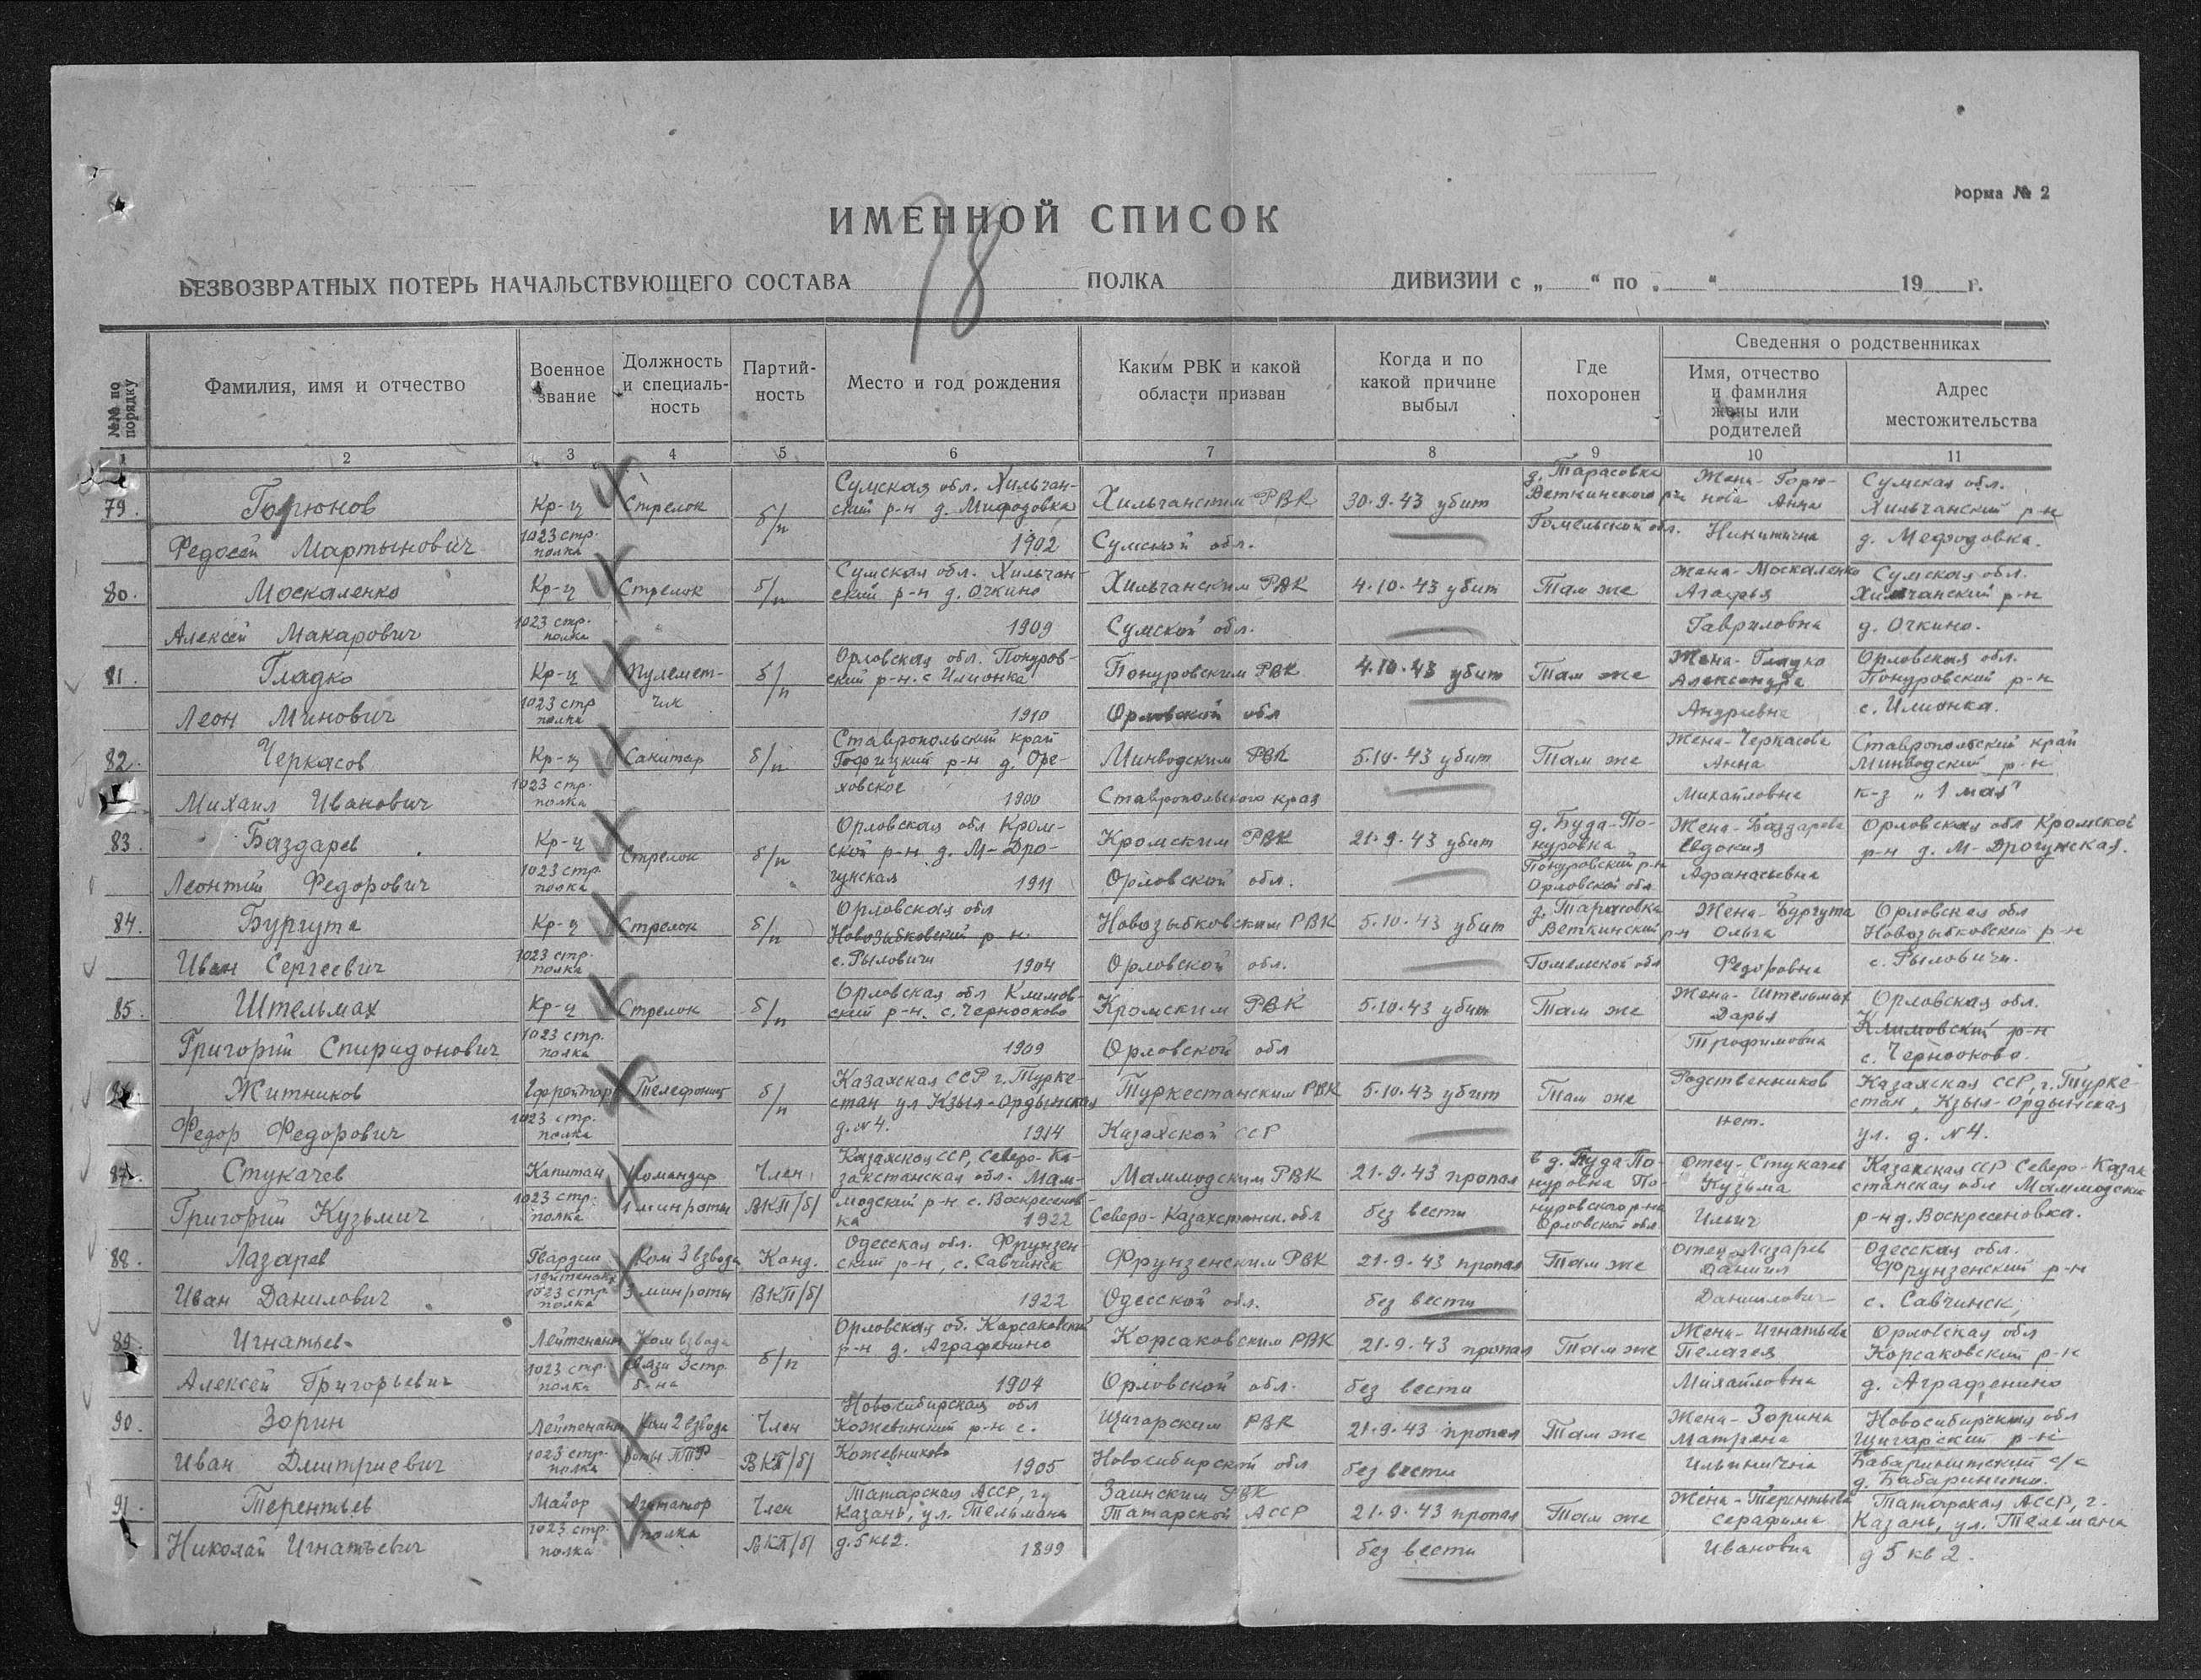 Форма № 2
ИМЕННОЙ СПИСОК
78
БЕЗВОЗВРАТНЫХ ПОТЕРЬ НАЧАЛЬСТВУЮЩЕГО СОСТАВА ПОЛКА ДИВИЗИИ с „ “ по „ “ 19 г.
№№ по порядку
Фамилия, имя и отчество
Военное звание
Должность и специаль-ность
Партий-ность
Место и год рождения
Каким РВК и какой области призван
Когда и по какой причине выбыл
Где похоронен
Сведения о родственниках
Имя, отчество и фамилия жены или родителей
Адрес местожительства
1 2 3 4 5 6 7 8 9 10 11
79. Горюнов Федосей Мартынович Кр-ц 1023 стр. полка Стрелок б/п Сумская обл. Хильчан-ский р-н д. Мифодовка 1902 Хильчанским РВК Сумской обл. 30.9.43 убит д. Тарасовка Веткинского р-на Гомельской обл. Жена- Горю-нова Анна Никитична Сумская обл. Хильчанский р-н д. Мефодовка.
80. Москаленко Алексей Макарович Кр-ц 1023 стр. полка Стрелок б/п Сумская обл. Хильчан-ский р-н д. Очкино 1909 Хильчанским РВК Сумской обл. 4.10.43 убит Там же Жена- Москаленко Агафья Гавриловна Сумская обл. Хильчанский р-н д. Очкино.
81. Гладко Леон Минович Кр-ц 1023 стр полка Пулемет-чик б/п Орловская обл. Понуров-ский р-н. с Илионка 1910 Понуровским РВК Орловской обл 4.10.43 убит Там же Жена- Гладко Александра Андреевна Орловская обл. Понуровский р-н с. Илионка.
82. Черкасов Михаил Иванович Кр-ц 1023 стр. полка Санитар б/п Ставропольский край р-н д. Оре-ховское 1900 Минводским РВК Ставропольского края 5.10.43 убит Там же Жена- Черкасова Анна Михайловна Ставропольский край Минводский р-н к-з „1 мая"
83. Баздарев Леонтий Федорович Кр-ц 1023 стр. полка Стрелок б/п Орловская обл Кром-ской р-н д. М-Дро-гунская 1911 Кромским РВК Орловской обл. 21.9.43 убит д. Буда-По-нуровка Понуровский р-н Орловской обл Жена- Баздарева Евдокия Афанасьевна Орловская обл Кромской р-н д. М-Дрогунская.
84. Бургута Иван Сергеевич Кр-ц 1023 стр. полка Стрелок б/п Орловская обл Новозыбковский р-н. с. Рыловичи 1904 Новозыбковским РВК Орловской обл. 5.10.43 убит д. Тарасовка Веткинский р-н Гомельской обл Жена- Бургута Ольга Федоровна Орловская обл Новозыбковский р-н с. Рыловичи.
85. Штельмах Григорий Спиридонович Кр-ц 1023 стр. полка Стрелок б/п Орловская обл Климов-ский р-н. с. Чернооково 1909 Кромским РВК Орловской обл 5.10.43 убит Там же Жена- Штельмах Дарья Трофимовна Орловская обл. Климовский р-н с. Чернооково.
86. Житников Федор Федорович Ефрейтор 1023 стр. полка Телефонист б/п Казахская ССР г. Турке-стан ул Кзыл-Ординская д. №4. 1914 Туркестанским РВК Казахской ССР 5.10.43 убит Там же Родственников нет. Казахская ССР, г. Турке-стан, Кзыл-Ордынская ул. д. №4.
87. Стукачев Григорий Кузьмич Капитан 1023 стр. полка Командир 1 минроты Член ВКП/б/ Казахская ССР, Северо-Ка-захстанская обл. Мам-лодский р-н с. Воскресенов-ка 1922 Маммодским РВК Северо-Казахстанск. обл 21.9.43 пропал без вести в д. Буда-По-нуровка По-нуровского р-на Орловской обл Отец- Стукачев Кузьма Ильич Казахская ССР Северо-Казах станская обл Маммодский р-н д. Воскресеновка.
88. Лазарев Иван Данилович Гвардии лейтенант 1023 стр полка Ком 3 взвода 3 минроты Канд. ВКП/б/ Одесская обл. Фрунзен-ский р-н, с. Савчинск 1922 Фрунзенским РВК Одесской обл. 21.9.43 пропал без вести Там же Отец- Лазарев Даниил Даниилович Одесская обл. Фрунзенский р-н с. Савчинск,
89. Игнатьев Алексей Григорьевич Лейтенант 1023 стр. полка Ком взвода связи 3 стр. б-на б/п Орловская об. Корсаковский р-н д. Аграфенино 1904 Корсаковским РВК Орловской обл. 21.9.43 пропал без вести Там же Жена- Игнатьева Пелагея Михайловна Орловская обл Корсаковский р-н д. Аграфенино
90. Зорин Иван Дмитриевич Лейтенант 1023 стр. полка Ком 2 взвода роты ПТР Член ВКП/б/ Новосибирская обл Кожевинский р-н с. Кожевниково 1905 Щигарским РВК Новосибирской обл 21.9.43 пропал без вести Там же Жена- Зорина Матрена Ильинична Новосибирская обл Щигарский р-н с/с д.
91. Терентьев Николай Игнатьевич Майор 1023 стр. полка Агитатор полка Член ВКП/б/ Татарская АССР, г. Казань, ул. Тельмана д. 5 кв 2. 1899 Заинским РВК Татарской АССР 21.9.43 пропал без вести Там же Жена- Терентьева Серафима Ивановна Татарская АССР, г. Казань, ул. Тельмана д 5 кв 2.